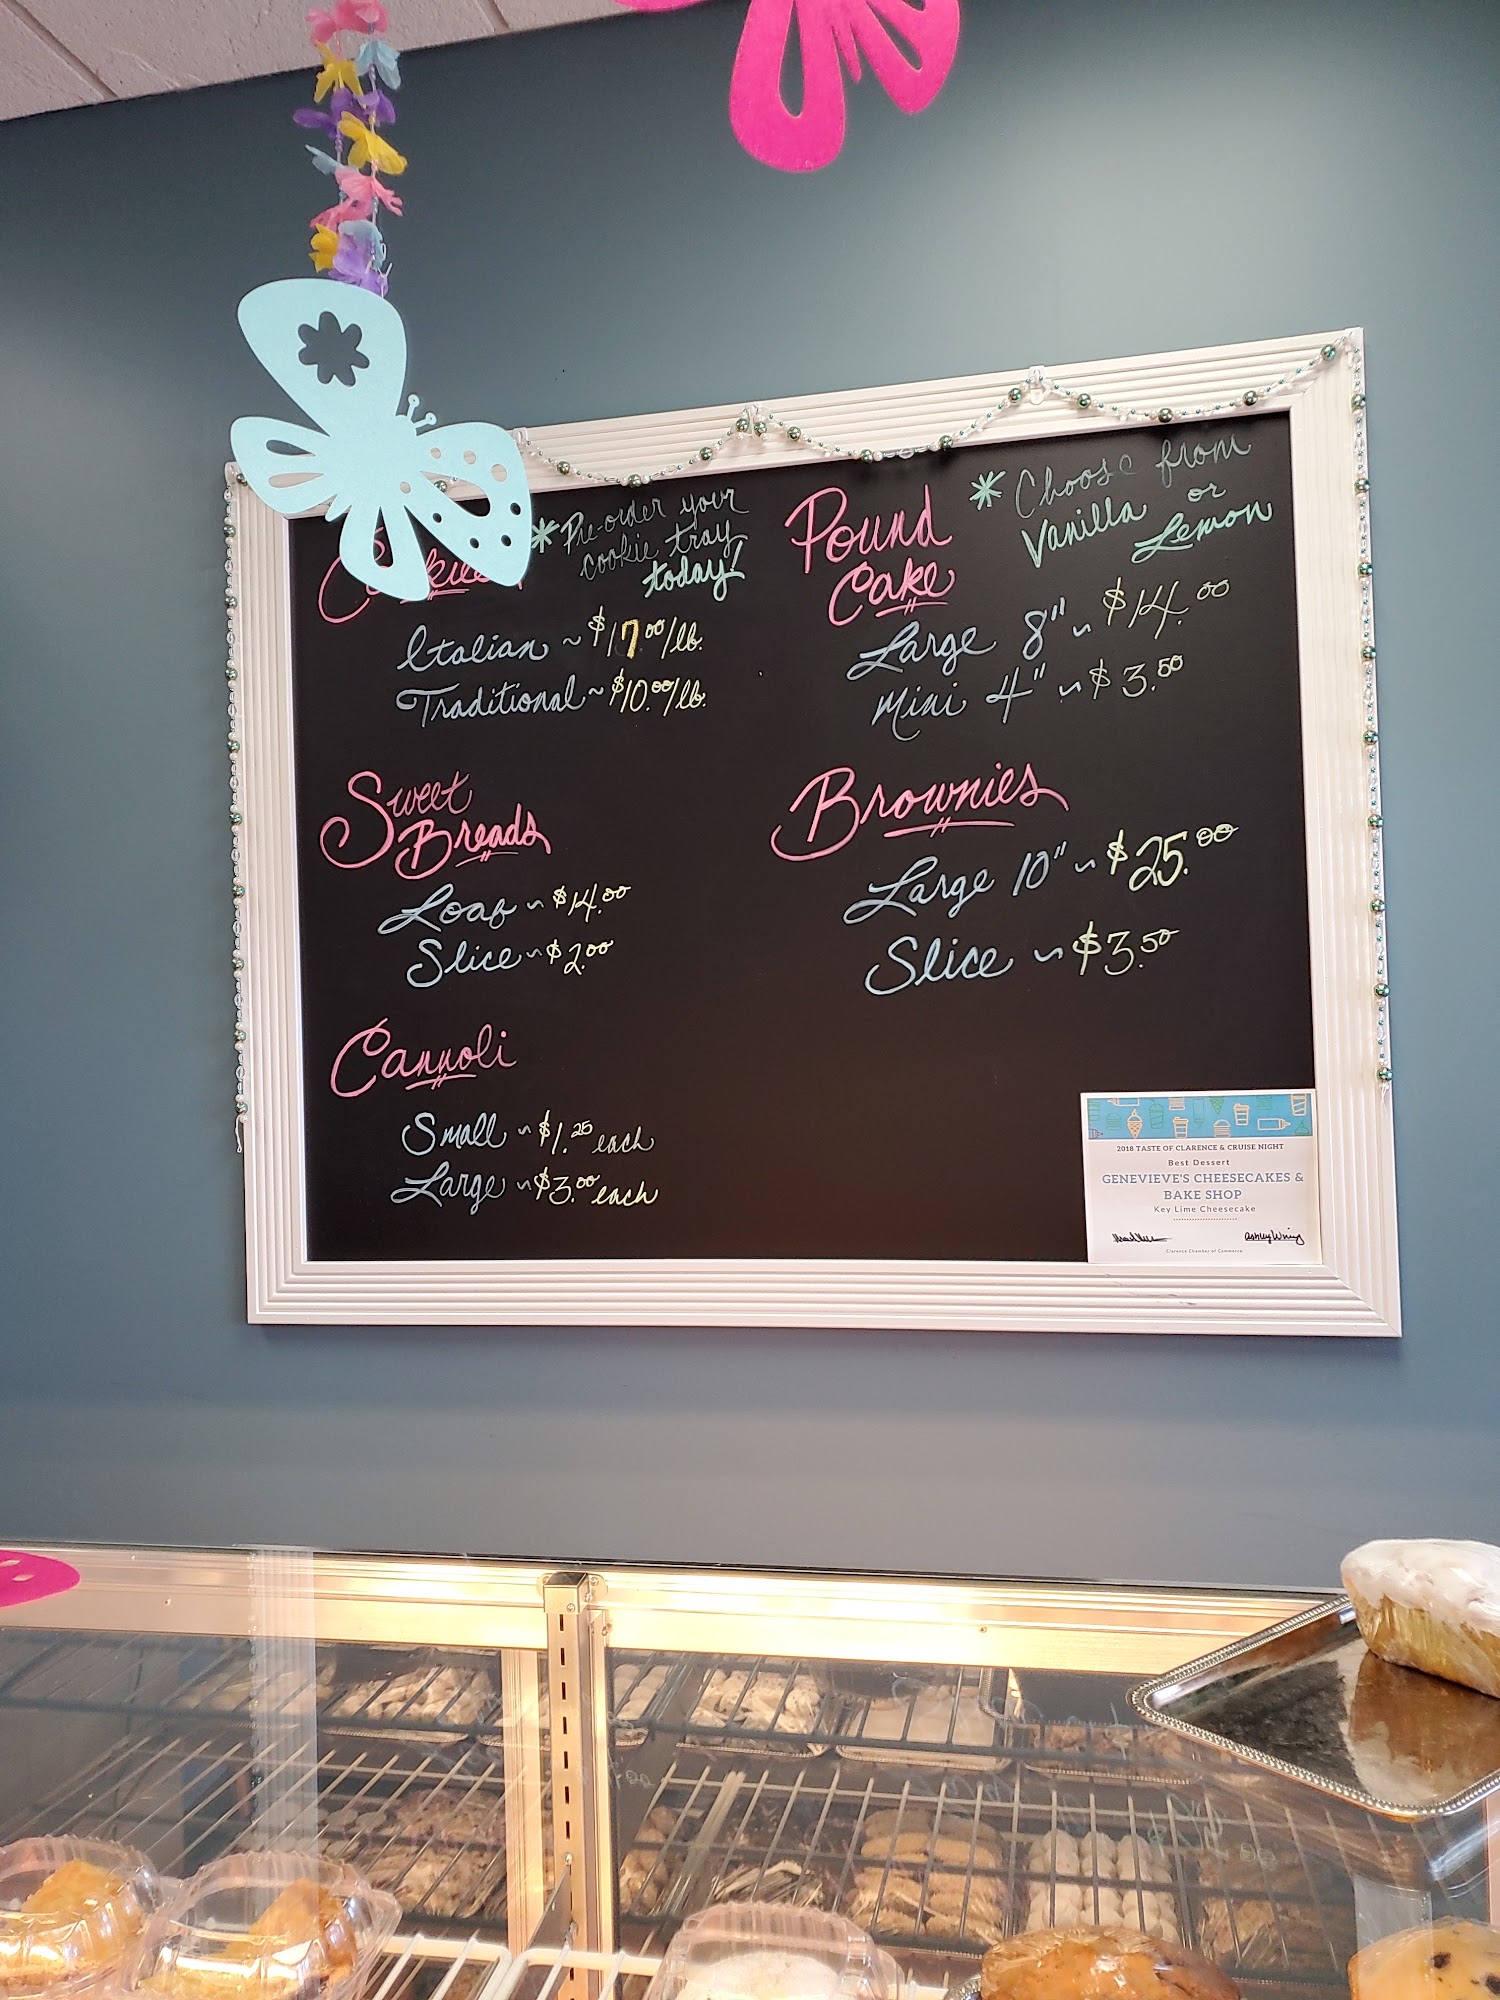 Cookies
* Pre-order your
cookie tray
today!
Italian ~ $17.00/lb.
Traditional ~ $10.00/lb.
Sweet
Breads
Loaf ~ $14.00
Slice ~ $2.00
Cannoli
Small ~ $1.25 each
Large ~ $3.00 each
Pound
Cake
* Choose from
Vanilla or
Lemon
Large 8" ~ $14.00
Mini 4" ~ $3.50
Brownies
Large 10" ~ $25.00
Slice ~ $3.50
2018 TASTE OF CLARENCE & CRUISE NIGHT
Best Dessert
GENEVIEVE'S CHEESECAKES &
BAKE SHOP
Key Lime Cheesecake
Clarence Chamber of Commerce